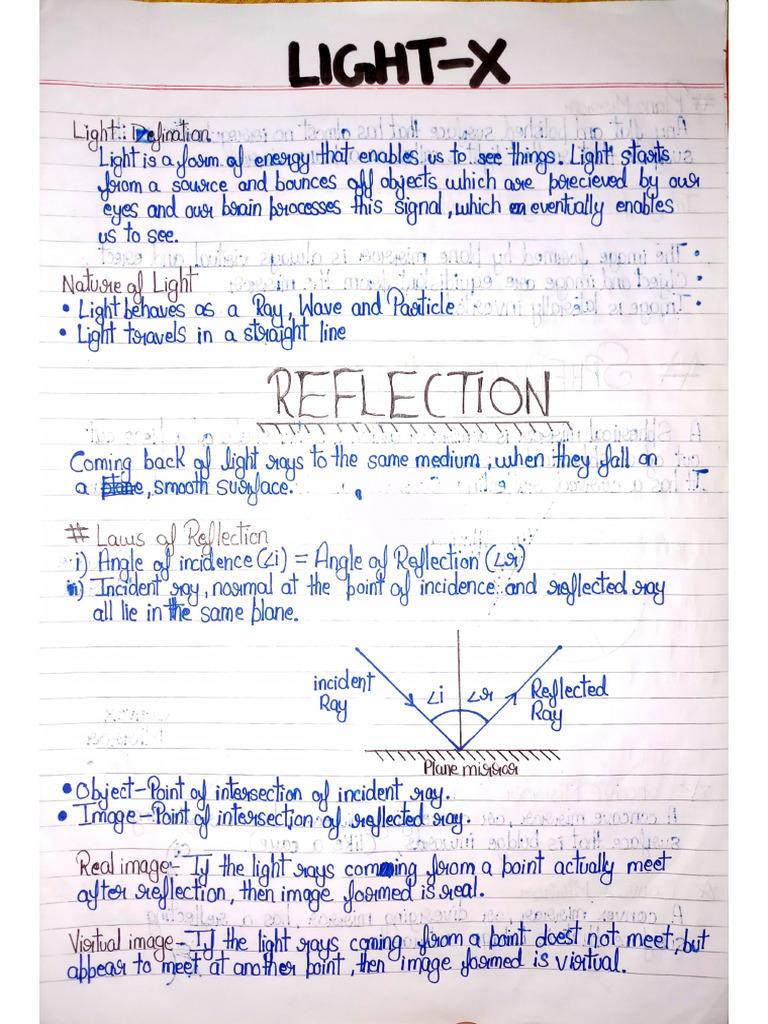 LIGHT-X
Light: Defination
Light is a form of energy that enables us to see things. Light starts
from a source and bounces off objects which are porecieved by our
eyes and our brain processes this signal, which en eventually enables
us to see.
Nature of Light
• Light behaves as a Ray, Wave and Particle
• Light travels in a straight line
REFLECTION
Coming back of light rays to the same medium, when they fall on
a plane, smooth surface.
# Laws of Reflection
i) Angle of incidence (∠i) = Angle of Reflection (∠r)
ii) Incident ray, normal at the point of incidence and reflected ray
all lie in the same plane.
incident
Ray
∠i ∠r
Reflected
Ray
Plane mirror
• Object-Point of intersection of incident ray.
• Image-Point of intersection of reflected ray.
Real image- If the light rays comming from a point actually meet
after reflection, then image formed is real.
Virtual image-If the light rays coming from a point doest not meet, but
appear to meet at another point, then image formed is virtual.